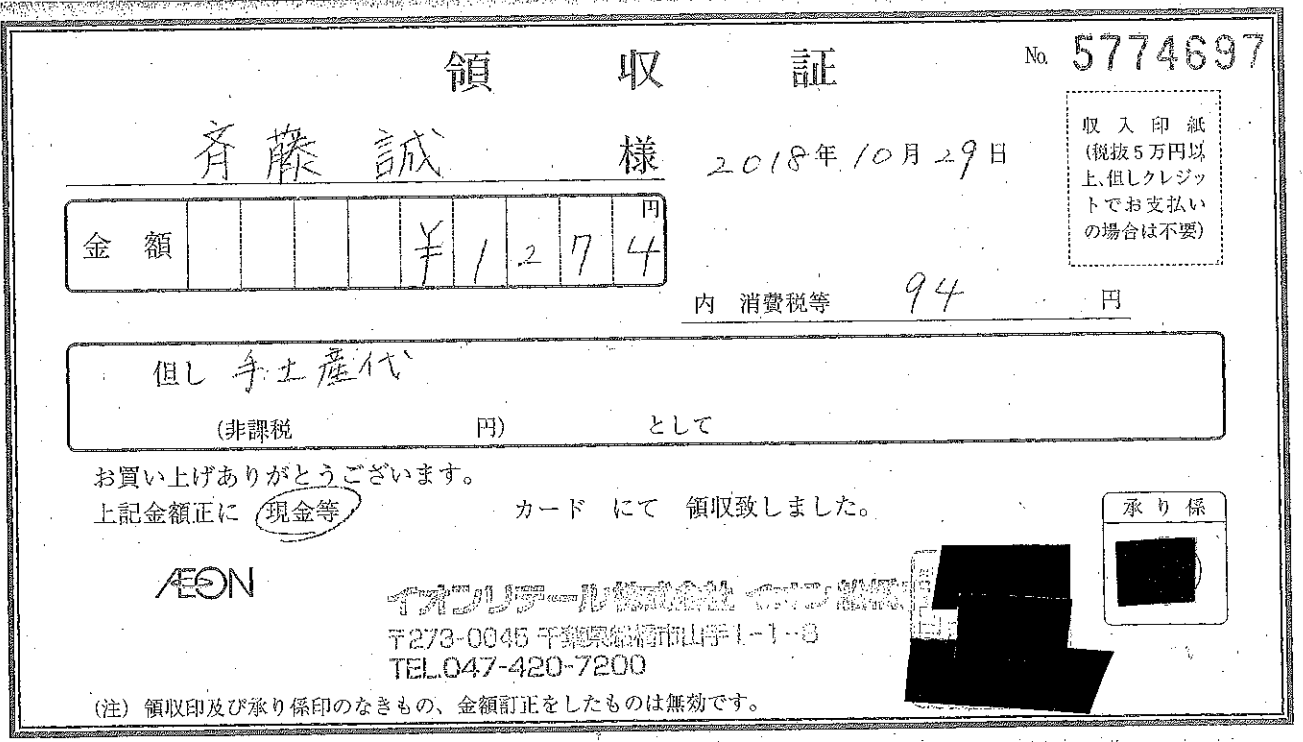 領収証
No. 5774697
斉藤 誠 様
2018年10月29日
収入印紙
(税抜5万円以
上、但しクレジッ
トでお支払い
の場合は不要)
金額 ¥1,274円
内 消費税等 94 円
但し 手土産代
(非課税 円) として
お買い上げありがとうございます。
上記金額正に 現金等 カード にて 領収致しました。
承り係
ÆON
イオンリテール株式会社 イオン船橋
〒273-0045 千葉県船橋市山手1-1-8
TEL.047-420-7200
(注) 領収印及び承り係印のなきもの、金額訂正をしたものは無効です。